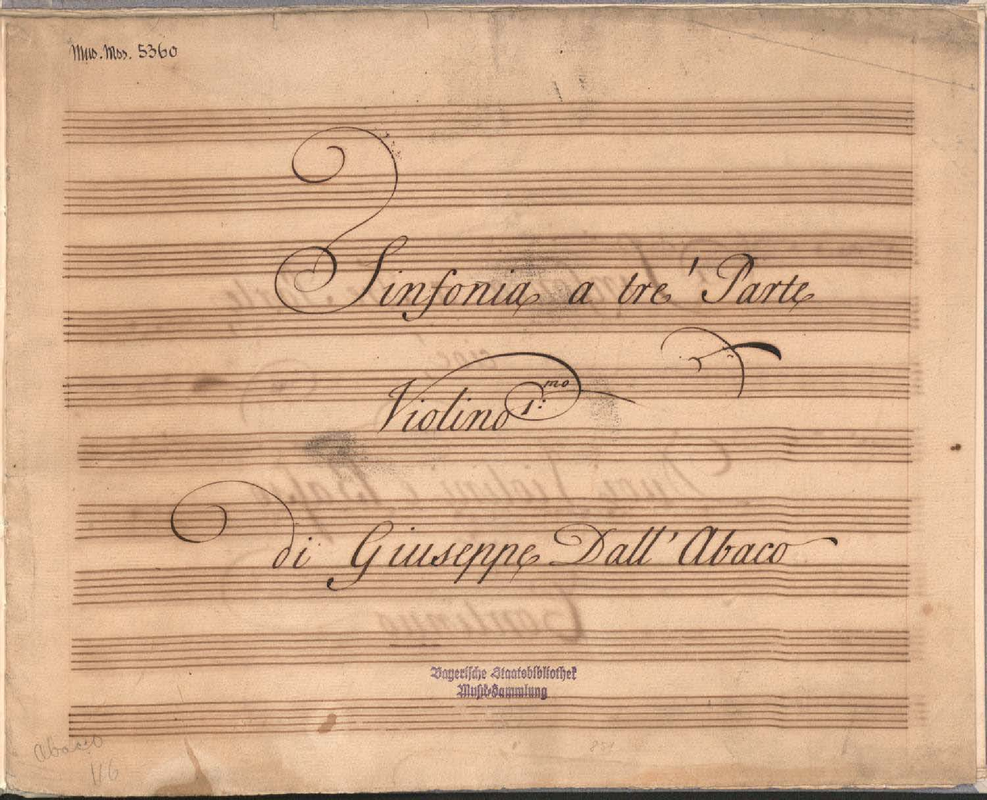 Mus. Mss. 5360
Sinfonia a tre' Parte
Violino 1:mo
di Giuseppe Dall' Abaco
Bayerische Staatsbibliothek
Musik-Sammlung
Abaco